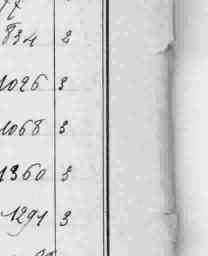 834 2
1026 3
1068 3
1360 3
1291 3